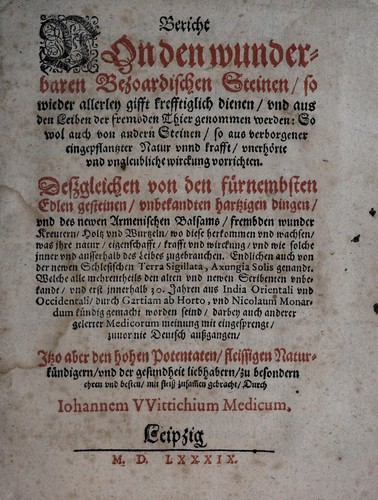 Bericht
VOn den wunder-
baren Bezoardischen Steinen / so
wieder allerley gifft krefftiglich dienen / vnd aus
den Leiben der frembden Thier genommen werden: So
wol auch von andern Steinen / so aus verborgener
eingepflanzter Natur vnnd krafft / vnerhörte
vnd vngleubliche wirckung vorrichten.
Deßgleichen von den fürnembsten
Edlen gesteinen / vnbekandten hartzigen dingen /
vnd des newen Armenischen Balsams / frembden wunder
Kreutern / Holtz vnd Wurtzeln / wo diese herkommen vnd wachsen /
was ihre natur / eigenschafft / krafft vnd wirckung / vnd wie solche
inner vnd ausserhalb des leibes zugebrauchen. Endlichen auch von
der newen Schlesischen Terra Sigillata, Axungia Solis genandt.
Welche alle mehrentheils den alten vnd newen Scribenten vnbe-
kandt / vnd erst innerhalb 30. Jahren aus India Orientali vnd
Occidentali / durch Gartiam ab Horto, vnd Nicolaum Monar-
dum kündig gemacht worden seind / darbey auch anderer
gelerter Medicorum meinung mit eingesprengt /
zuuor nie Deutsch außgangen /
Itzo aber den hohen Potentaten / fleissigen Natur-
kündigern / vnd der gesundheit liebhabern / zu besondern
ehren vnd besten / mit fleiß zusammen gebracht / Durch
Iohannem VVittichium Medicum.
Leipzig
M. D. LXXXIX.